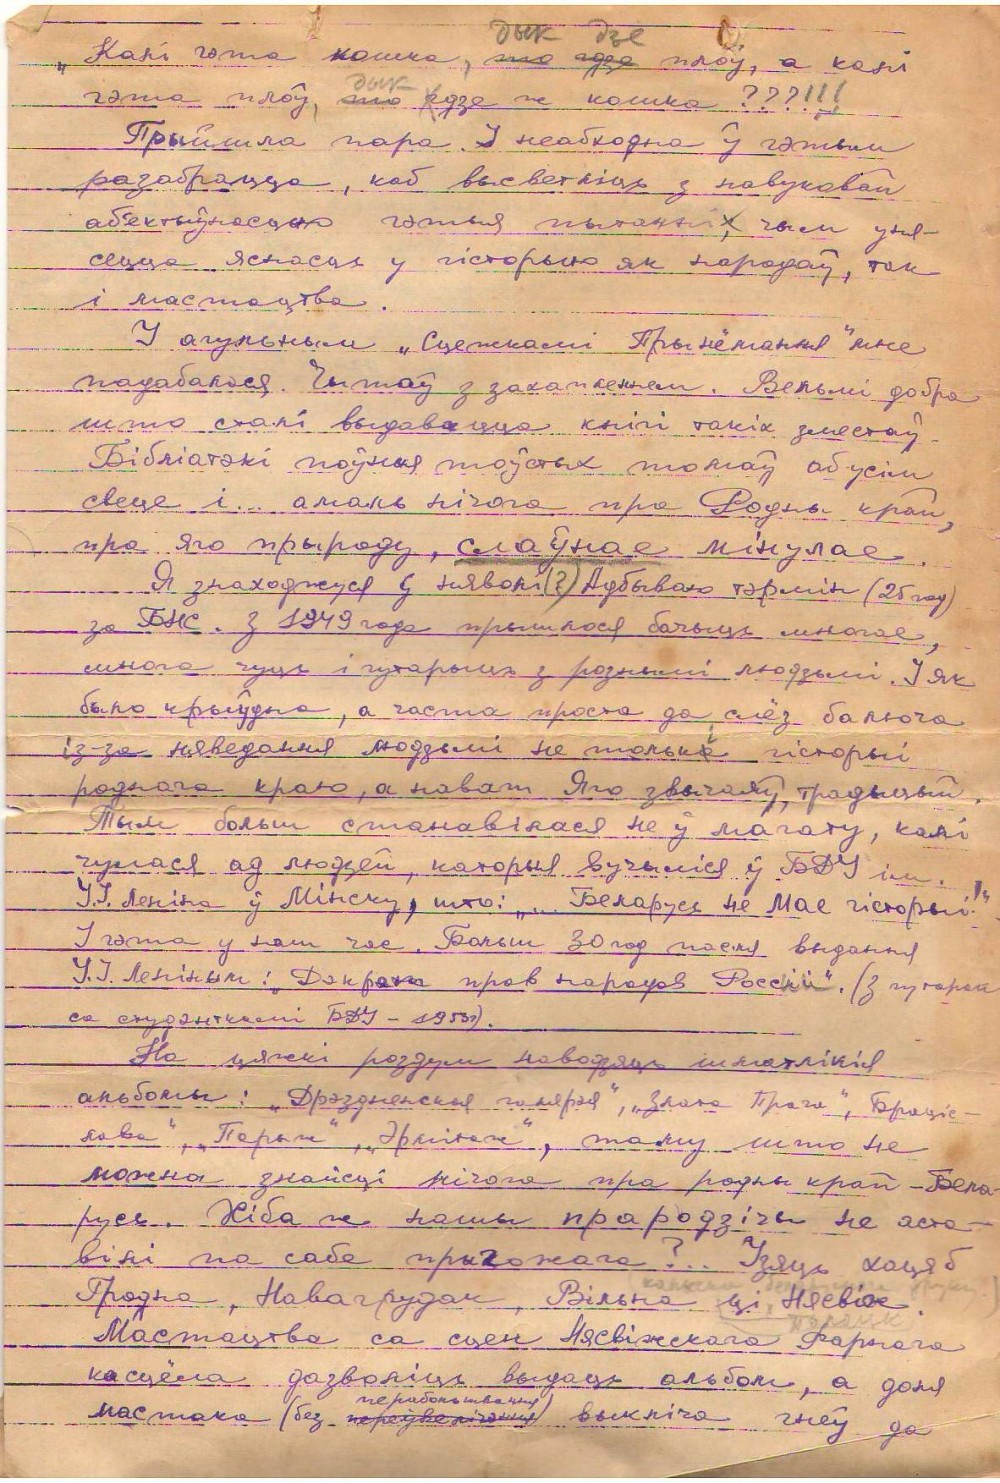 дык дзе
„Калі гэта кошка, то гдзе плоў, а калі
дык
гэта плоў, то гдзе ж кошка ???!!!
Прыйшла пара. І неабходна ў гэтым
разабрацца, каб высветліць з навуковай
аб'ектыўнасцю гэтыя пытанні, чым уня-
сецца яснасць у гісторыю як народаў, так
і мастацтва.
У агульным „Сцежкамі Прынёмання" мне
падабалося. Чытаў з захапленнем. Вельмі добра
што сталі выдавацца кнігі такіх зместаў.
Бібліатэкі поўныя тоўстых томаў аб усім
свеце і... амаль нічога пра Родны край,
пра яго прыроду, слаўнае мінулае.
Я знаходжуся ў няволі (?) Адбываю тэрмін (25 год)
за БНС. З 1949 года прышлося бачыць многае,
многа чуць і гутарыць з рознымі людзьмі. І як
было крыўдна, а часта проста да слёз балюча
із-за няведання людзьмі не толькі гісторыі
роднага краю, а нават Яго звычаяў, традыцый.
Тым больш станавілася не ў магату, калі
чулася ад людзей, каторыя вучыліся ў БДУ ім.
У.І. Леніна ў Мінску, што: „... Беларусь не мае гісторыі!"
І гэта у наш час. Больш 30 год пасля выдання
У.І. Леніным: „Дэкрэта прав народов России". (З гутаркі
са студэнткамі БДУ –
На цяжкі роздум наводзяць шматлікія
альбомы: „Дрэздненская галярэя", „Злата Прага", „Браціс-
лава", „Парыж", „Эрмітаж", таму што не
можна знайсці нічога пра родны край – Бела-
русь. Хіба ж нашы прародзічы не аста-
вілі па сабе прыгожага?... Узяць хаця б
(калыска беларускага друку.)
Гродна, Навагрудак, Вільна ці Нясвіж.
Полацк
Мастацтва са сцен Нясвіжскага Фарнага
касцёла дазволіць выдаць альбом, а доля
перабольшвання
мастака (без преувелічэння) выкліча гнеў да